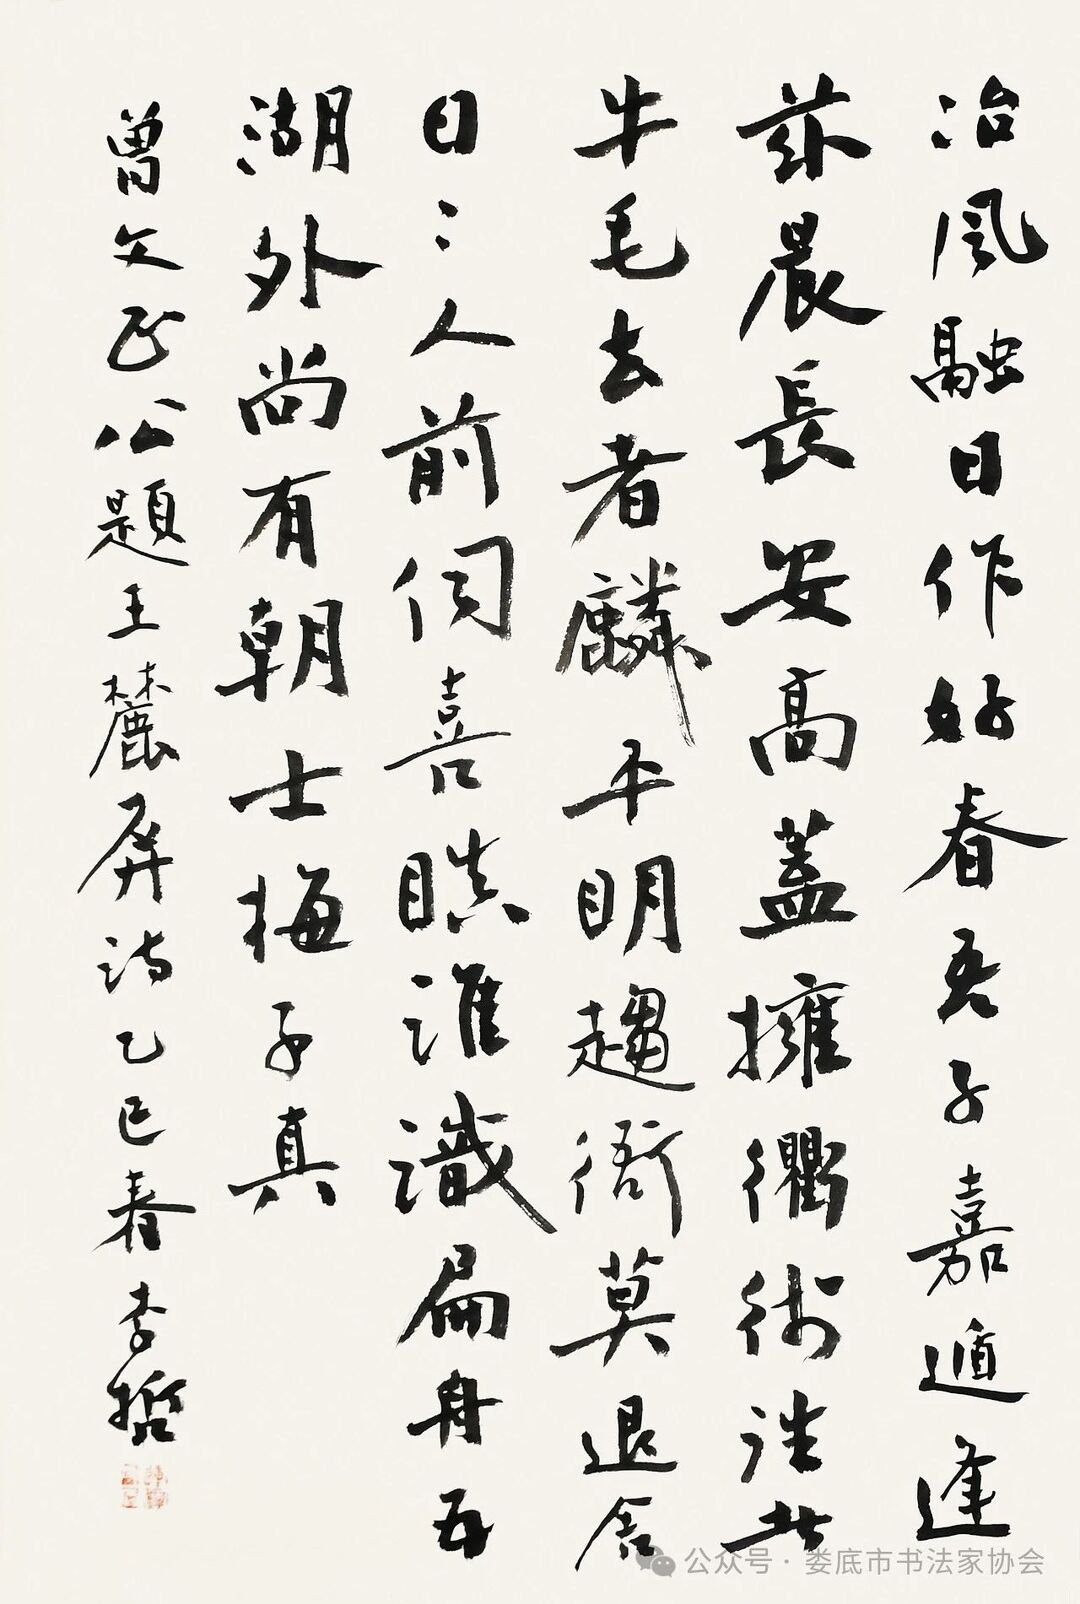 冶風融日作好春吾子嘉遁逢
茲晨長安高蓋擁衢術往者
牛毛去者麟平明趨衙莫退食
日〻人前伺喜瞋誰識扁舟五
湖外尚有朝士梅子真
曾文正公題王麓屏詩乙巳春李哲
公众号·娄底市书法家协会